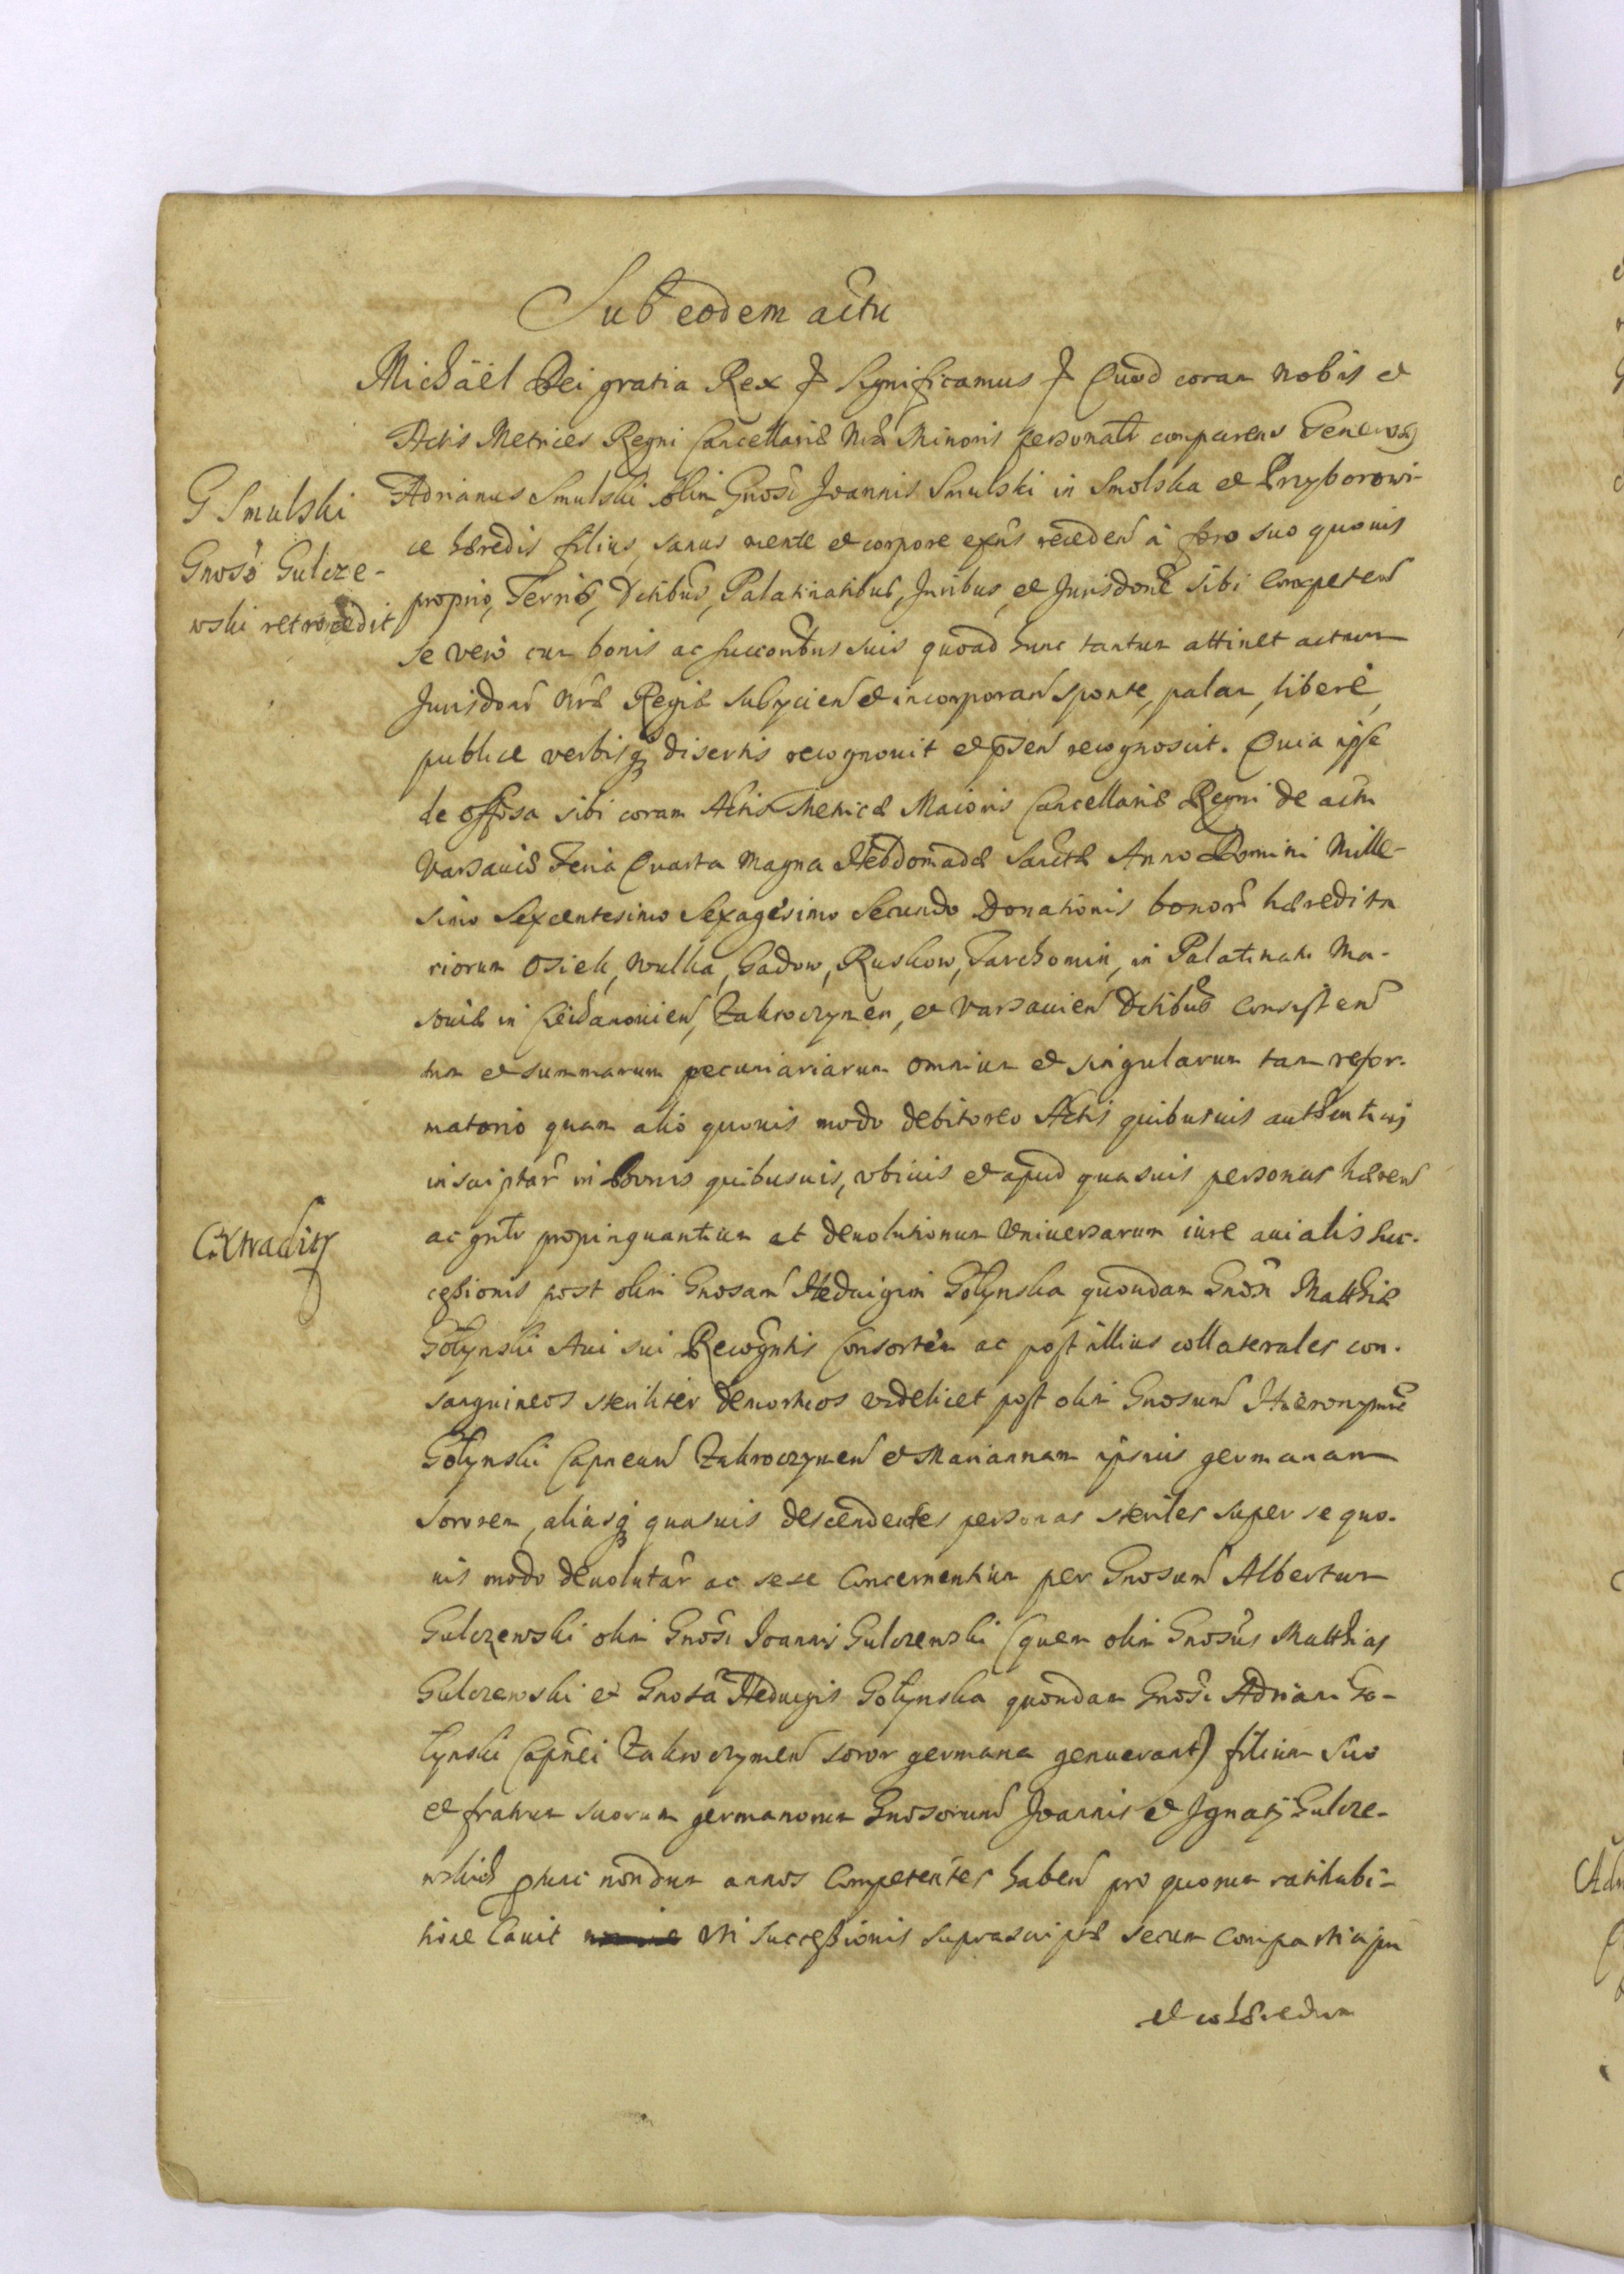 Sub eodem actu
Michäel Dei gratia Rex Significamus Quod coram nobis et
Actis Metrices Regni Cancellariæ nræ Minoris personalr comparens Generosus
Adrianus Smulski olim Gnosi Joannis Smulski in Smolska et Przyborowi-
G Smulski
Gnoso Gulcze-
wski retrocedit
ce hæredis filius, sanus mente et corpore exñs receden à foro suo quovis
proprio, Terris, Dctibus, Palatinatibus, Juribus, et Jurisdone sibi Competen
se vero cum bonis ac succoribus suis quoad hunc tantum attinet actum
Jurisdoni nræ Regiæ subycien et incorporan sponte, palam, liberè,
publice verbisq disertis recognovit et pñen recognoscit. Quia ipse
de sibi coram Actis Metricæ Maioris Cancellariæ Regni de actu
Varsaviæ Feria Quarta Magna Hebdomadæ Sanctæ Anno Domini Mille-
simo Sexcentesimo Sexagesimo Secundo Donationis bonorũ hæredita
riorum Osiek, Wulka, Gadow, Ruskow, Tarchomin, in Palatinatu Ma-
soviæ in Ciechanovien, Zakroczymen, et Varsavien Dctibus Consisten
tium et summarum pecuniariarum omnium et singularum tam refor-
matorio quam alio quovis modo debitoreo Actis quibusvis authenticis
inscriptar in bonis quibusvis, ubivis et apud quasvis personas hæren
Extraditz
ac gnlr propinquantium at devolutionum Universarum iure avialis suc-
cessionis post olim Gnosam Hedvigim Gołynska quondam Gnosi Matthiæ
Gołynski Avi sui Recogntis Consortem ac post illius collaterales con-
sanguineos steriliter demortuos videlicet post olim Gnosum Hieronymũ
Gołynski Capneum Zakroczymen et Mariannam ipsius germanam
sororem, aliasq quasvis descendentes personas steriles super se quo-
vis modo devolutar ac sese Concernentium per Gnosum Albertum
Gulczewski olim Gnosi Joannis Gulczewski (quem olim Gnosus Matthias
Gulczewski et Gnosa Hedvigis Gołynska quondam Gnosi Adriani Go-
łynski Capnei Zakroczymen soror germana genuerant) filium suo
et fratrum suorum germanorum Gnosorum Joannis et Ignatij Gulcze-
wskich adhuc nondum annos Competentes haben pro quorum ratihabi-
tione Cavit uti successionis suprascriptæ secum
et cohæredum